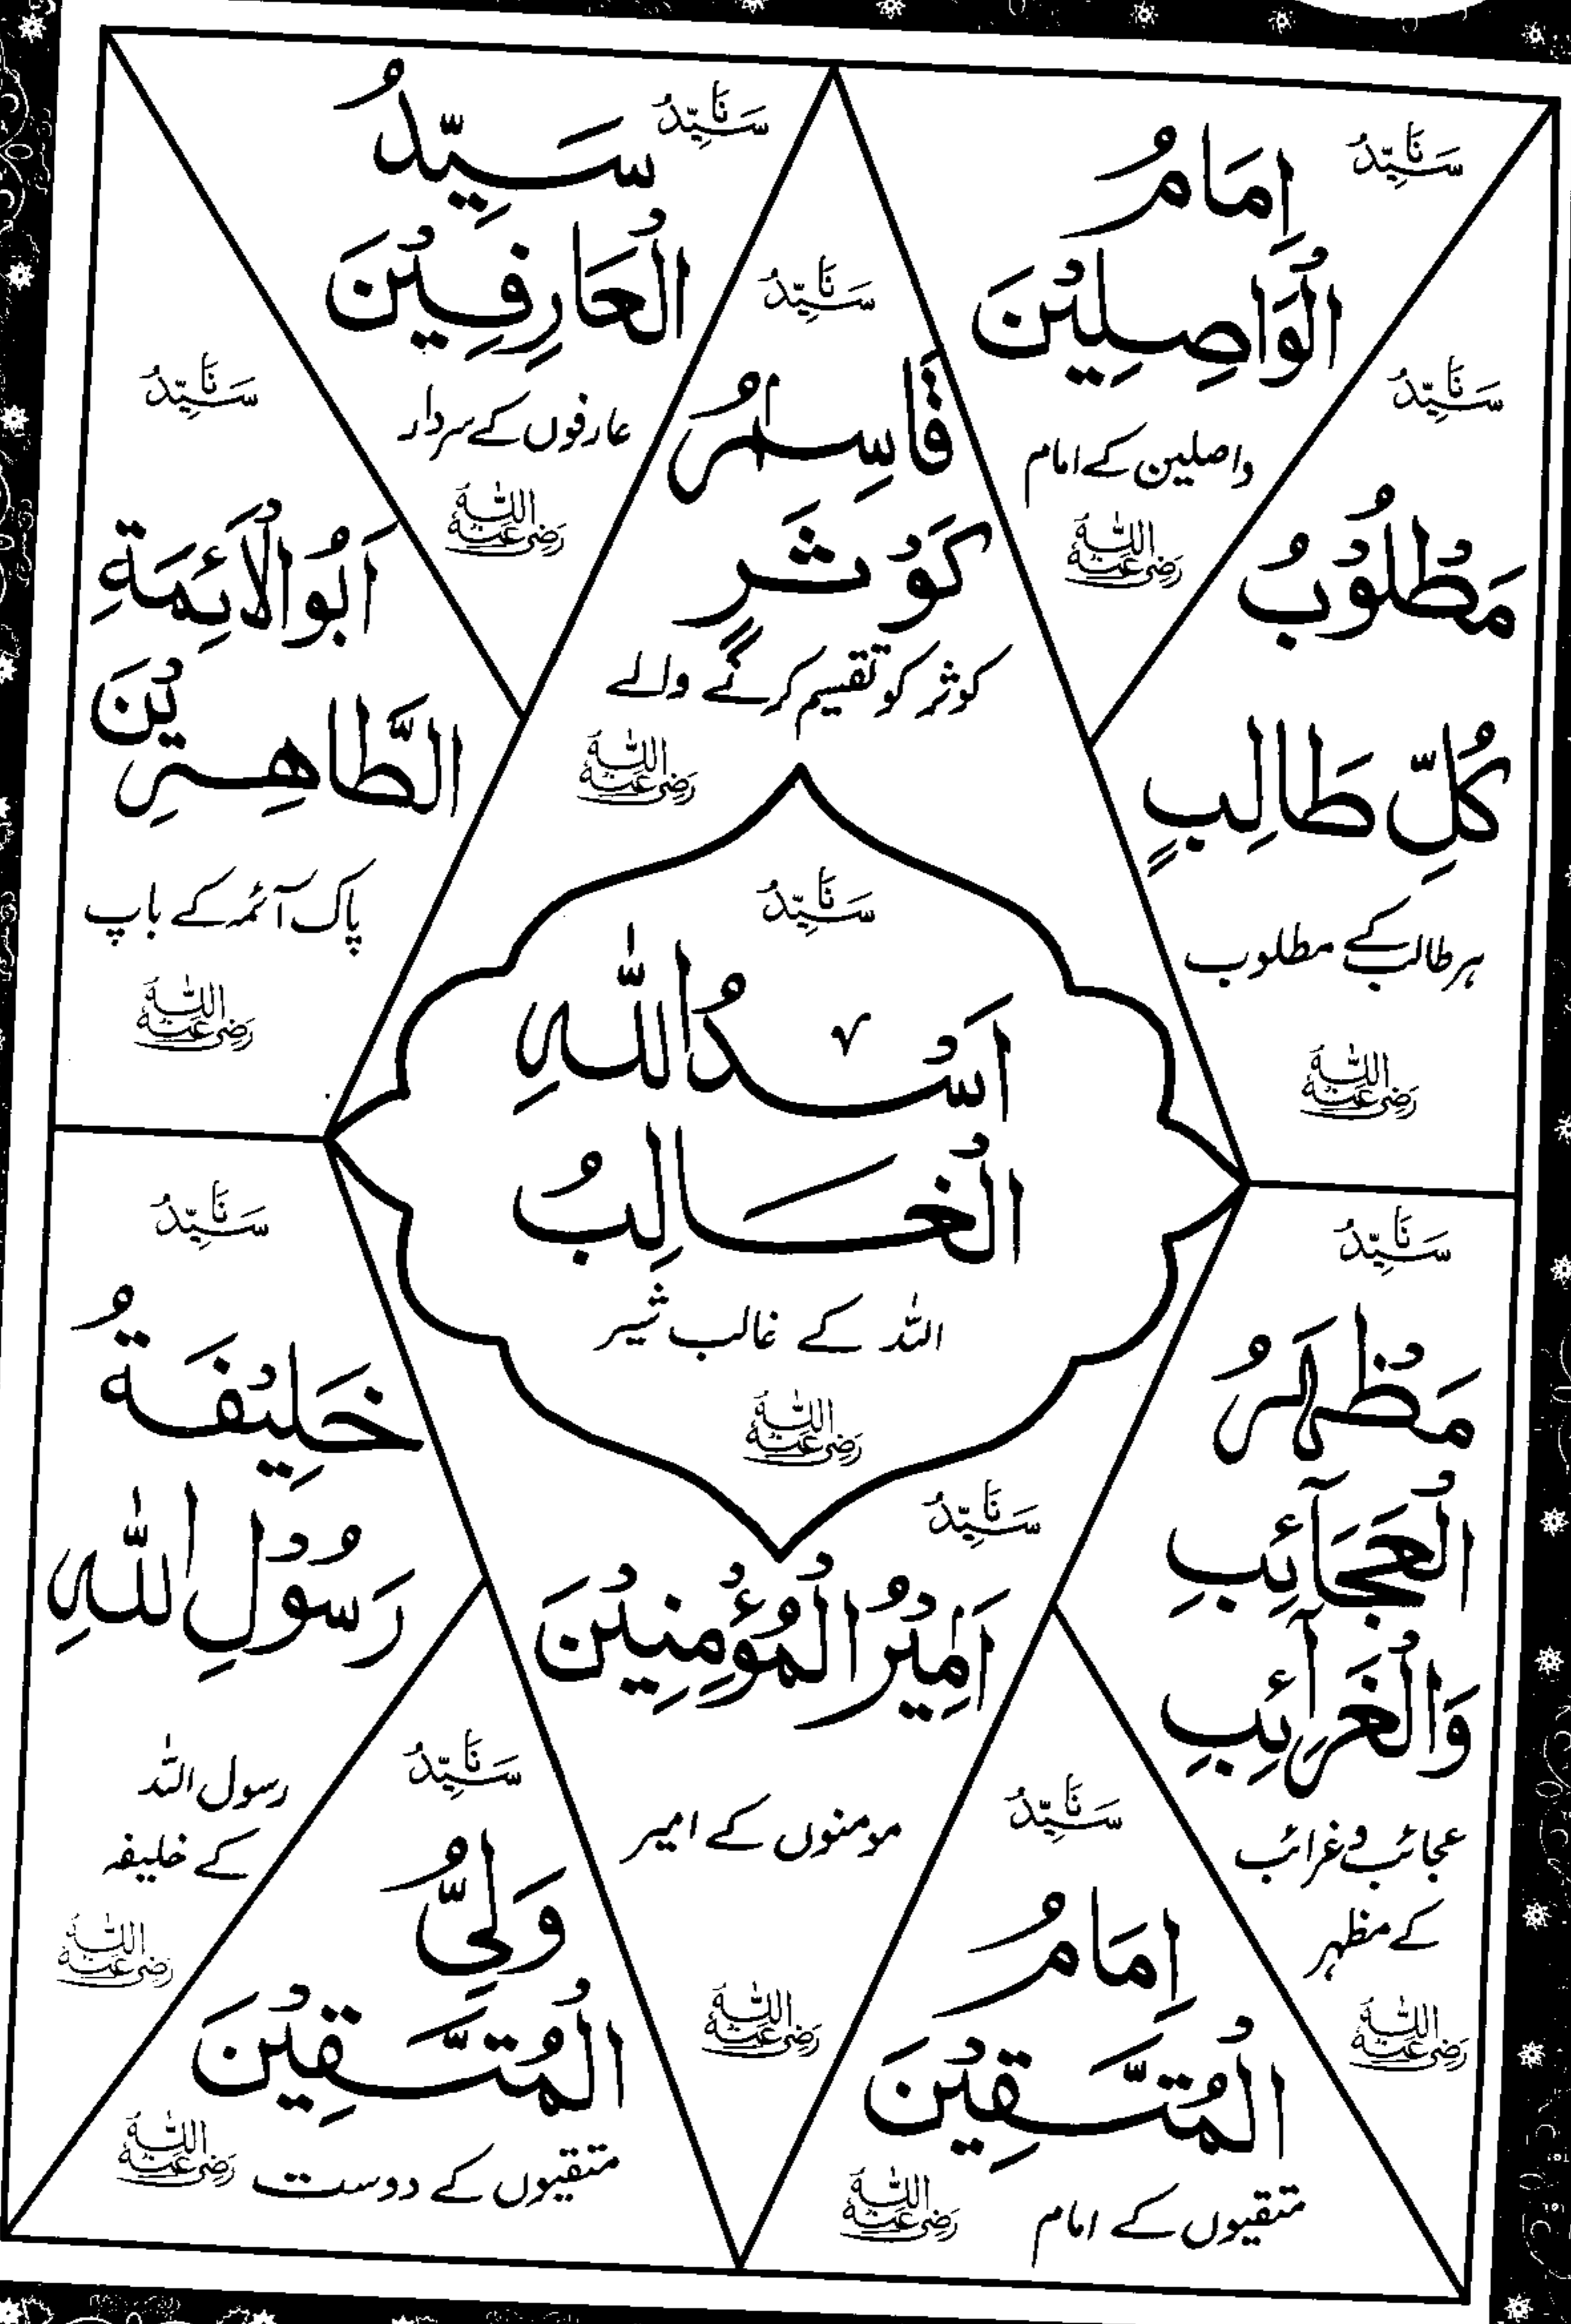 سَيِّدُنَا
اِمَامُ
الْوَاصِلِيْنَ
واصلین کے امام
رَضِیَ اللّٰهُ عَنْهُ
سَيِّدُنَا
سَيِّدُ
الْعَارِفِيْنَ
عارفوں کے سردار
رَضِیَ اللّٰهُ عَنْهُ
سَيِّدُنَا
قَاسِمُ
كَوْثَرٍ
کوثر کو تقسیم کرنے والے
رَضِیَ اللّٰهُ عَنْهُ
سَيِّدُنَا
مَطْلُوْبُ
كُلِّ طَالِبٍ
ہر طالب کے مطلوب
رَضِیَ اللّٰهُ عَنْهُ
سَيِّدُنَا
اَبُو الْاَئِمَةِ
الطَّاهِرِيْنَ
پاک آئمہ کے باپ
رَضِیَ اللّٰهُ عَنْهُ
سَيِّدُنَا
اَسْدُ اللّٰهِ
الْغَالِبُ
اللہ کے غالب شیر
رَضِیَ اللّٰهُ عَنْهُ
سَيِّدُنَا
مَظْهَرُ
الْعَجَآئِبِ
وَالْغَرَآئِبِ
عجائب و غرائب
کے مظہر
رَضِیَ اللّٰهُ عَنْهُ
سَيِّدُنَا
خَلِيْفَةُ
رَسُوْلِ اللّٰهِ
رسول اللہ
کے خلیفہ
رَضِیَ اللّٰهُ عَنْهُ
سَيِّدُنَا
اَمِيْرُ الْمُؤْمِنِيْنَ
مومنوں کے امیر
رَضِیَ اللّٰهُ عَنْهُ
سَيِّدُنَا
اِمَامُ
الْمُتَّقِيْنَ
متقیوں کے امام
رَضِیَ اللّٰهُ عَنْهُ
سَيِّدُنَا
وَلِيُّ
الْمُتَّقِيْنَ
متقیوں کے دوست
رَضِیَ اللّٰهُ عَنْهُ